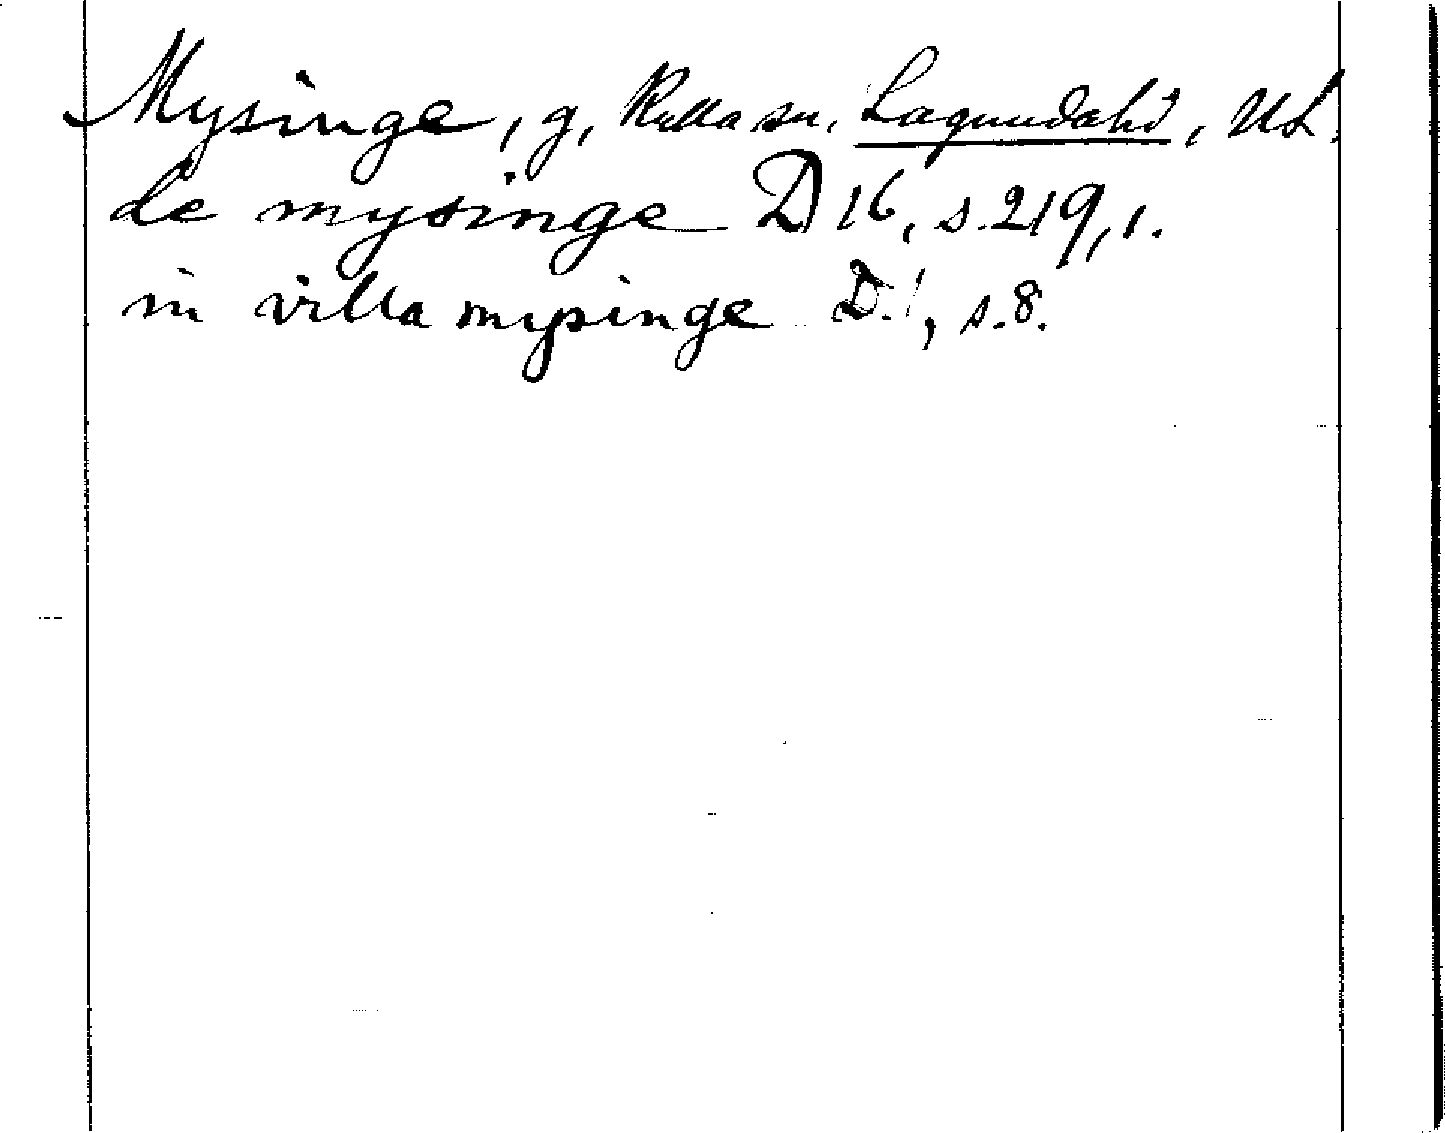 Mysinge, g, Kulla sn, Lagundahd, UL.
de mysinge D 16, s. 219, 1.
in villa mysinge D. 1, s. 8.